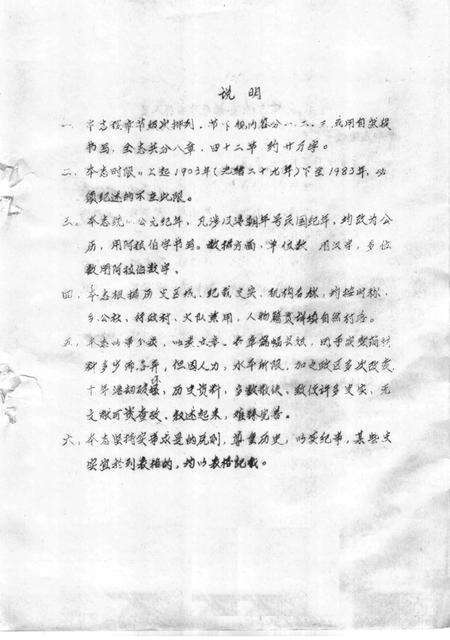 说明
一、本志按章节级次排列，节下视内容分一、二、三，或用自然段
书写，全志共分八章，四十二节，约廿万字。
二、本志时限，上起1903年(光绪二十九年)下至1983年，必
须纪述的不在此限。
三、本志统一公元纪年，凡涉及清朝年号民国纪年，均改为公
历，用阿拉伯字书写。数据方面，单位数用汉字，多位
数用阿拉伯数字。
四、本志根据历史区域，纪载史实、机构名称，均按时称，
乡公社、行政村、大队兼用，人物籍贯详填自然村庄。
五、本志以事分类，以类立章，各章篇幅长短，因手底资料
料多少而各异，但因人力，水平所限，加之政区多次改变
十年浩劫破坏，历史资料，多数散失，致使许多史实，无
文献可资查改，叙述起来，难臻完善。
六、本志坚持实事求是的原则，尊重历史，以类纪事，某些史
实宜於列表格的，均以表格记载。